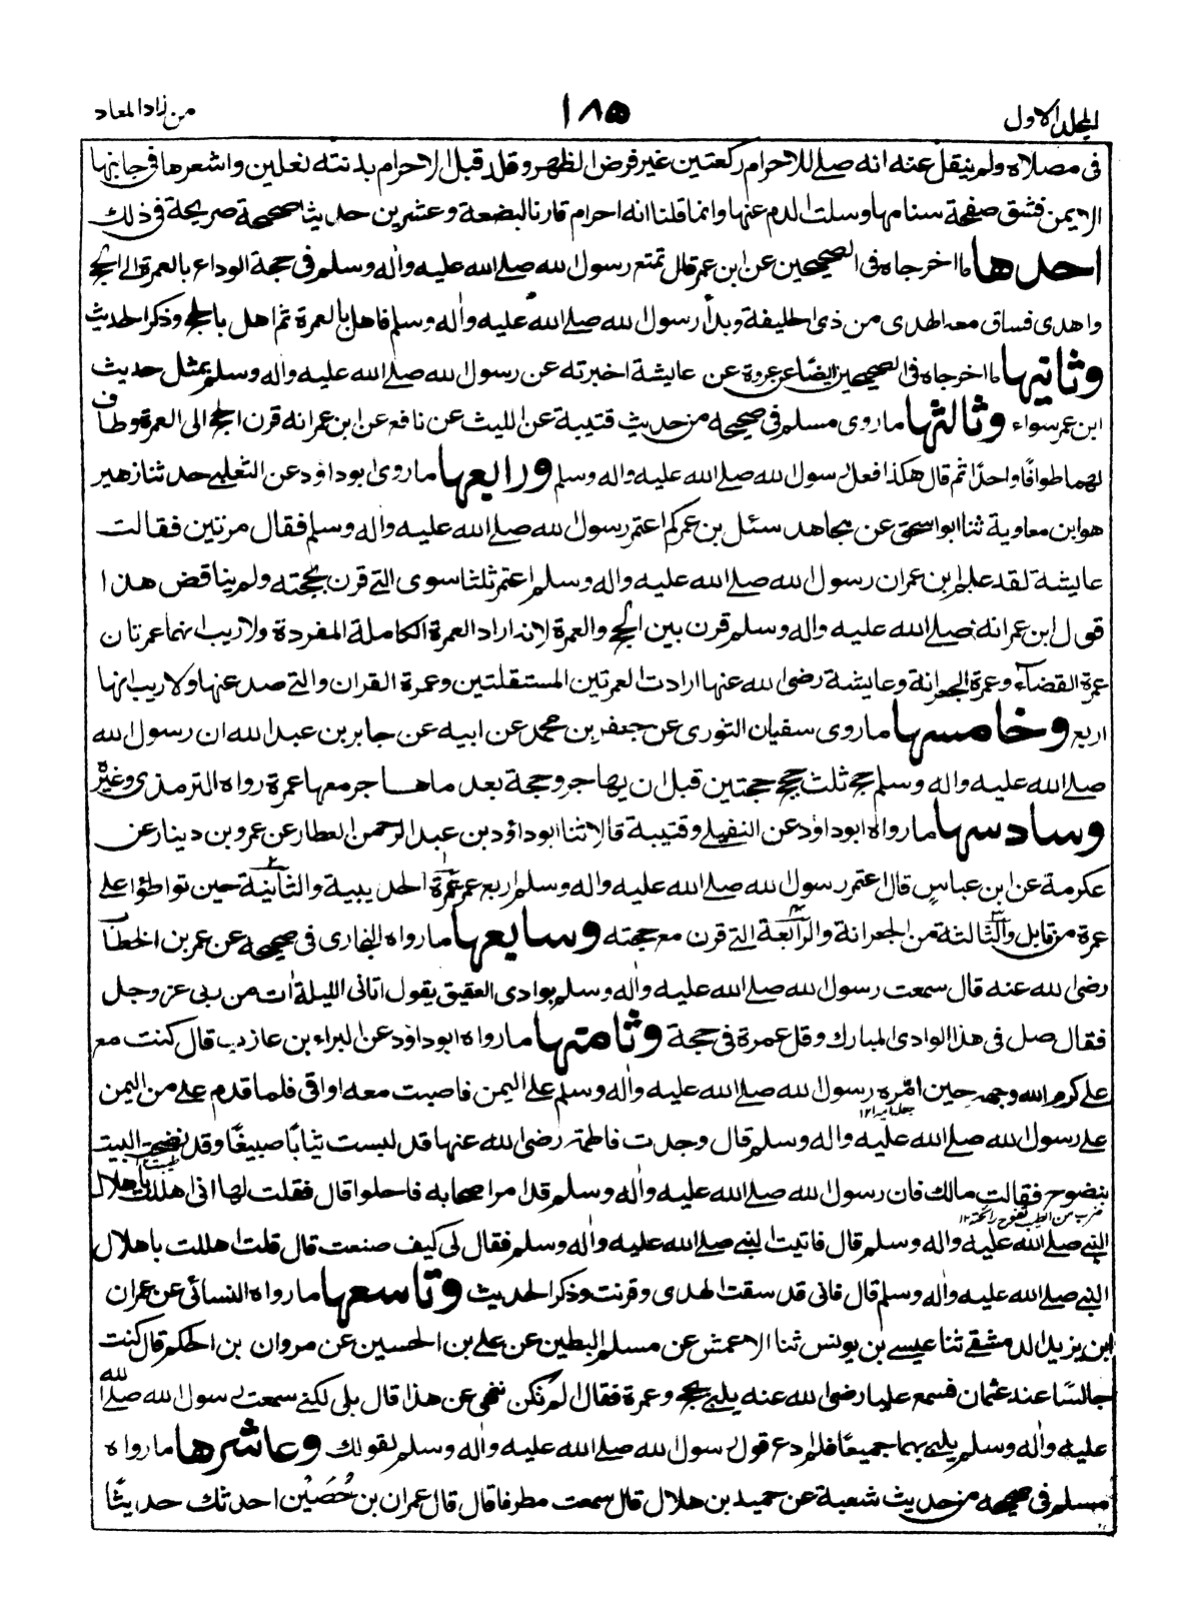 المجلد الاول
١٨٥
من زاد المعاد
فى مصلاه ولم ينقل عنه انه صلے للاحرام ركعتين غير فرض الظهر وقلد قبل الاحرام بدنته نعلين واشعرها فى جانبها
الايمن فشق صفحة سنامها وسلت الدم عنها وانما قلنا انه احرام قارنا لبضعة وعشرين حديثا صحيحة صريحة فى ذلك
احدها ما اخرجاه فى الصحيحين عن ابن عمر قال تمتع رسول الله صلے الله عليه واٰله وسلم فى حجة الوداع بالعمرة الے الحج
واهدى فساق معه الهدى من ذى الحليفة وبدأ رسول الله صلے الله عليه واٰله وسلم فاهل بالعمرة ثم اهل بالحج وذكر الحديث
وثانيها ما اخرجاه فى الصحيحين ايضًا عن عروة عن عايشة اخبرته عن رسول الله صلے الله عليه واله وسلم بمثل حديث
ابن عمر سواء وثالثها ما روى مسلم فى صحيحه من حديث قتيبة عن الليث عن نافع عن ابن عمر انه قرن الحج الى العمرة وطاف
لهما طوافًا واحدًا ثم قال هكذا فعل رسول الله صلے الله عليه واله وسلم ورابعها ما روى ابوداؤد عن النفيلے حدثنا زهير
هو ابن معاوية ثنا ابواسحق عن مجاهد سئل بن عمر كم اعتمر رسول الله صلے الله عليه واٰله وسلم فقال مرتين فقالت
عايشة لقد علم ابن عمر ان رسول الله صلے الله عليه واله وسلم اعتمر ثلثا سوى التے قرن بحجته ولم يناقض هذا
قول ابن عمر انه صلے الله عليه واله وسلم قرن بين الحج والعمرة لانه اراد العمرة الكاملة المفردة ولا ريب انهما عمرتان
عمرة القضآء وعمرة الجعرانة وعايشة رضى الله عنها ارادت العمرتين المستقلتين وعمرة القران والتے صد عنها ولا ريب انها
اربع وخامسها ما روى سفيان الثورى عن جعفر بن محمد عن ابيه عن جابر بن عبد الله ان رسول الله
صلے الله عليه واله وسلم حج ثلث حجج حجتين قبل ان يهاجر وحجة بعد ما هاجر معها عمرة رواه الترمذى وغيره
وسادسها ما رواه ابوداؤد عن النفيلے وقتيبة قالا ثنا ابوداؤد بن عبد الرحمن العطار عن عمرو بن دينار عن
عكرمة عن ابن عباسٍ قال اعتمر رسول الله صلے الله عليه واله وسلم اربع عمر عمرة الحديبية والثانية حين تواطؤا علے
عمرة من قابل والثالثة من الجعرانة والرابعة التے قرن مع حجته وسابعها ما رواه البخارى فى صحيحه عن عمر بن الخطاب
رضى الله عنه قال سمعت رسول الله صلے الله عليه واٰله وسلم بوادى العقيق يقول اتانى الليلة اٰت من ربى عز وجل
فقال صل فى هذا الوادى المبارك وقل عمرة فى حجة وثامنها ما رواه ابوداؤد عن البراء بن عازب قال كنت مع
علے كرم الله وجهه حين امّره رسول الله صلے الله عليه واٰله وسلم علے اليمن فاصبت معه اواقى فلما قدم علے من اليمن
علے رسول الله صلے الله عليه واله وسلم قال وجدت فاطمة رضى الله عنها قد لبست ثيابًا صبيغًا وقد نضحت البيت
بنضوح فقالت مالك فان رسول الله صلے الله عليه واٰله وسلم قد امر اصحابه فاحلوا قال فقلت لها انى اهللت باهلال
ضرب من الطيب تفوح رائحته ١٢
النبے صلے الله عليه واٰله وسلم قال فاتيت النبے صلے الله عليه واٰله وسلم فقال لى كيف صنعت قال قلت اهللت باهلال
النبے صلے الله عليه واٰله وسلم قال فانى قد سقت الهدى وقرنت وذكر الحديث وتاسعها ما رواه النسائى عن عمران
ابن يزيد الدمشقے ثنا عيسے بن يونس ثنا الاعمش عن مسلم البطين عن علے بن الحسين عن مروان بن الحكم قال كنت
جالسًا عند عثمان فسمع عليا رضى الله عنه يلبے بحج وعمرة فقال الم نكن ننهى عن هذا قال بلى لكنے سمعت رسول الله صلے الله
عليه واٰله وسلم يلبے بهما جميعًا فلم ادع قول رسول الله صلے الله عليه واٰله وسلم لقولك وعاشرها ما رواه
مسلم فى صحيحه من حديث شعبة عن حميد بن هلال قال سمعت مطرفا قال قال عمران بن حُصَيْن احدثك حديثًا